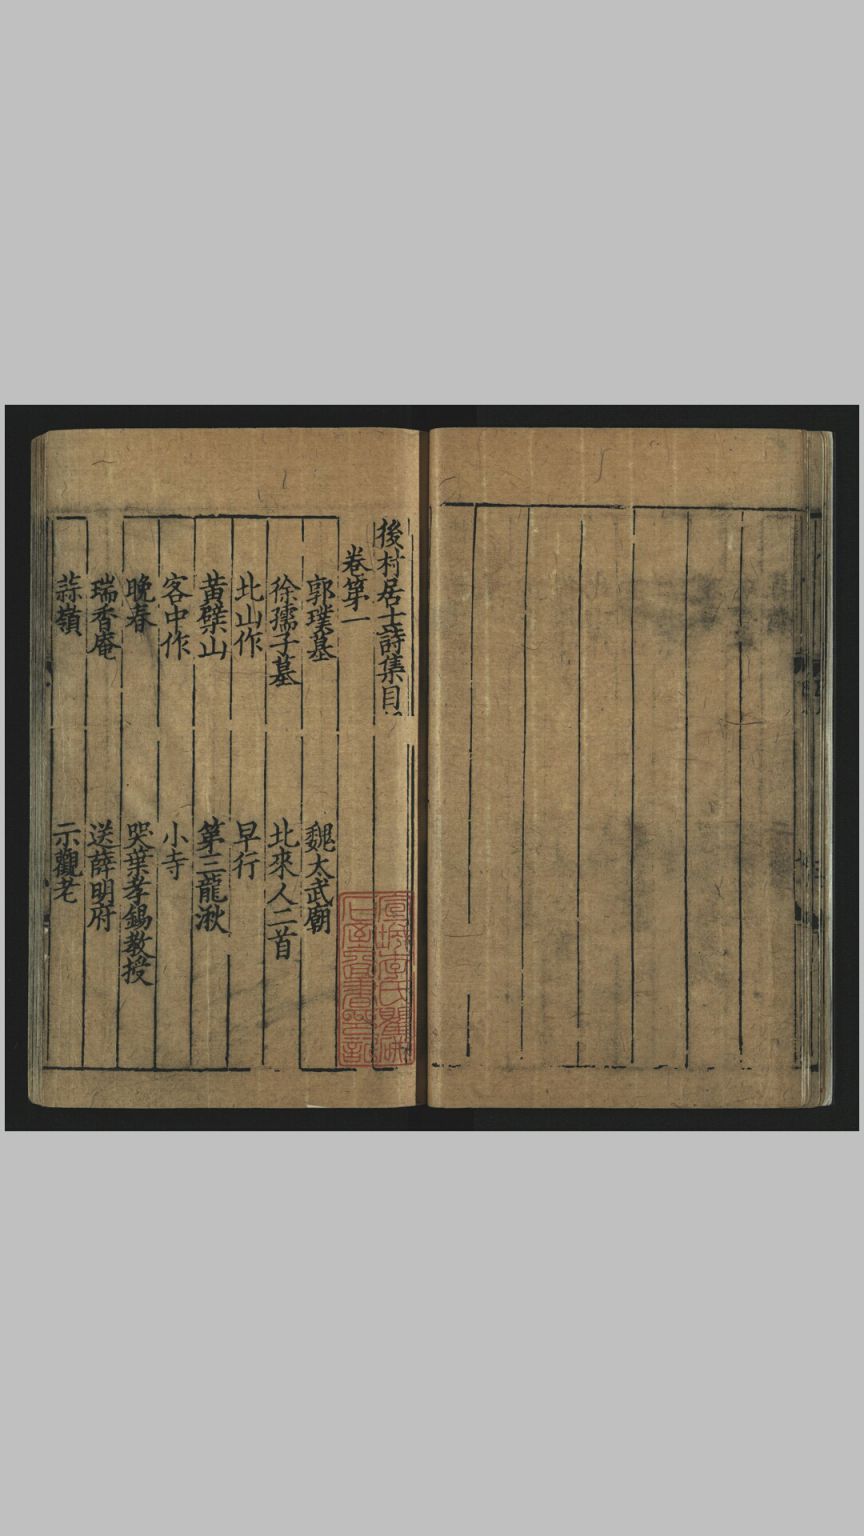 後村居士詩集目
卷第一
郭璞墓　魏太武廟
徐孺子墓　北來人二首
北山作　早行
黃檗山　第三龍湫
客中作　小寺
晚春　哭葉孝錫教授
瑞香庵　送薛明府
蒜嶺　示觀老